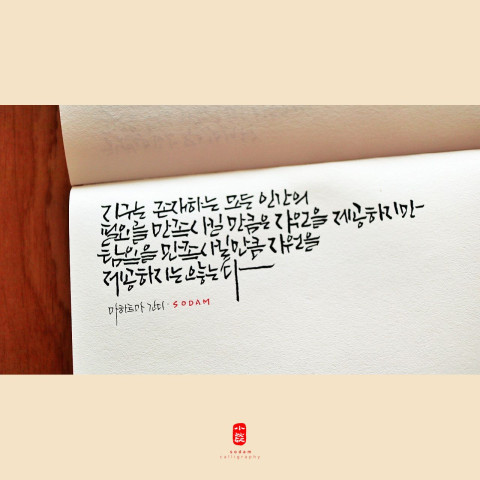 지구는 존재하는 모든 인간의
필요를 만족시킬 만큼은 자원을 제공하지만
탐욕을 만족시킬만큼 자원을
제공하지는 않는다
마하트마 간디 · SODAM
sodam
calligraphy